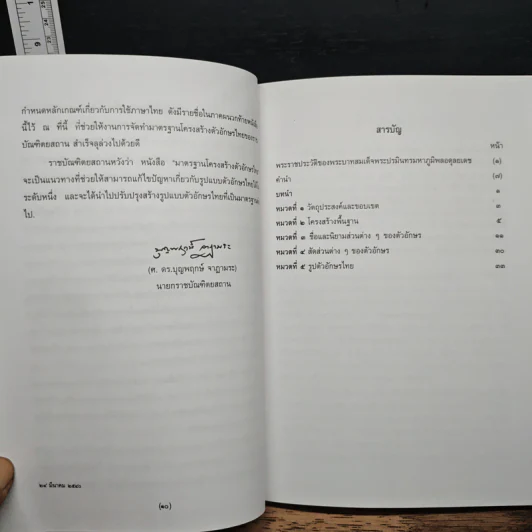 กำหนดหลักเกณฑ์เกี่ยวกับการใช้ภาษาไทย ดังมีรายชื่อในภาคผนวกท้ายหนังสือ
นี้ไว้ ณ ที่นี้ ที่ช่วยให้งานการจัดทำมาตรฐานโครงสร้างตัวอักษรไทยของราช
บัณฑิตยสถาน สำเร็จลุล่วงไปด้วยดี
ราชบัณฑิตยสถานหวังว่า หนังสือ "มาตรฐานโครงสร้างตัวอักษรไทย
จะเป็นแนวทางที่ช่วยให้สามารถแก้ไขปัญหาเกี่ยวกับรูปแบบตัวอักษรไทยได้ใน
ระดับหนึ่ง และจะได้นำไปปรับปรุงสร้างรูปแบบตัวอักษรไทยที่เป็นมาตรฐาน
ไป.
(ศ. ดร.บุญพฤกษ์ จาฏามระ)
นายกราชบัณฑิตยสถาน
มีนาคม
(๑๐)
สารบัญ
หน้า
พระราชประวัติของพระบาทสมเด็จพระปรมินทรมหาภูมิพลอดุลยเดช (๑)
คำนำ (๗)
บทนำ ๑
หมวดที่ ๑ วัตถุประสงค์และขอบเขต ๓
หมวดที่ ๒ โครงสร้างพื้นฐาน ๕
หมวดที่ ๓ ชื่อและนิยามส่วนต่าง ๆ ของตัวอักษร ๑๑
หมวดที่ ๔ สัดส่วนต่าง ๆ ของตัวอักษร ๓๐
หมวดที่ ๕ รูปตัวอักษรไทย ๓๓